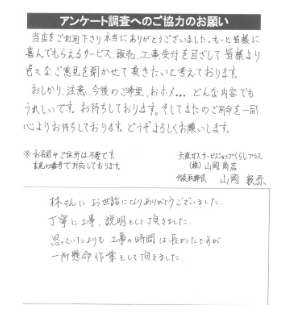 アンケート調査へのご協力のお願い
当店をご利用下さり本当にありがとうございました。もっと皆様に
喜んでもらえるサービス、販売、工事受付を目ざして皆様より
色々なご意見を聞かせて頂きたいと考えております。
おしかり、注意、今後のご希望、おホメ… どんな内容でも
うれしいです。お待ちしております。そしてまたのご用命を一同
心よりお待ちしております。どうぞよろしくお願いします。
※お名前やご住所は不要です。
大阪ガスサービスショップくらしプラス
(株)山岡商店
山岡
林さんに お世話になりありがとうございました。
丁寧に工事、説明をして頂きました。
思いたよりも 工事の時間は長かったですが
一所懸命作業をして頂きました。